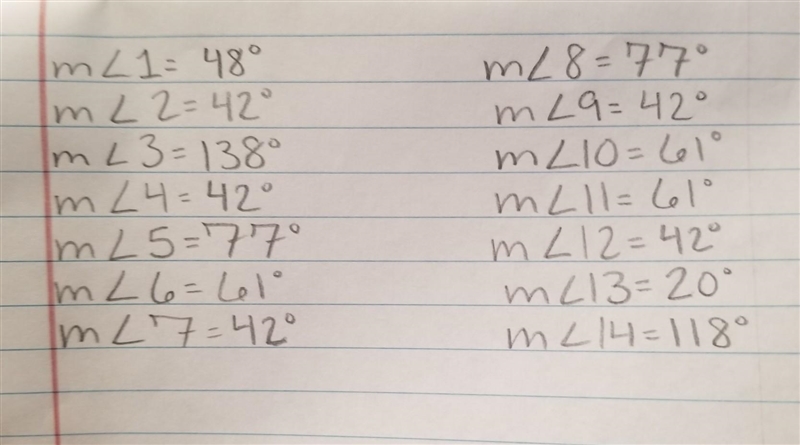 m∠1= 48°
m∠2=42°
m∠3=138°
m∠4=42°
m∠5=77°
m∠6=61°
m∠7=42°
m∠8=77°
m∠9=42°
m∠10=61°
m∠11=61°
m∠12=42°
m∠13=20°
m∠14=118°